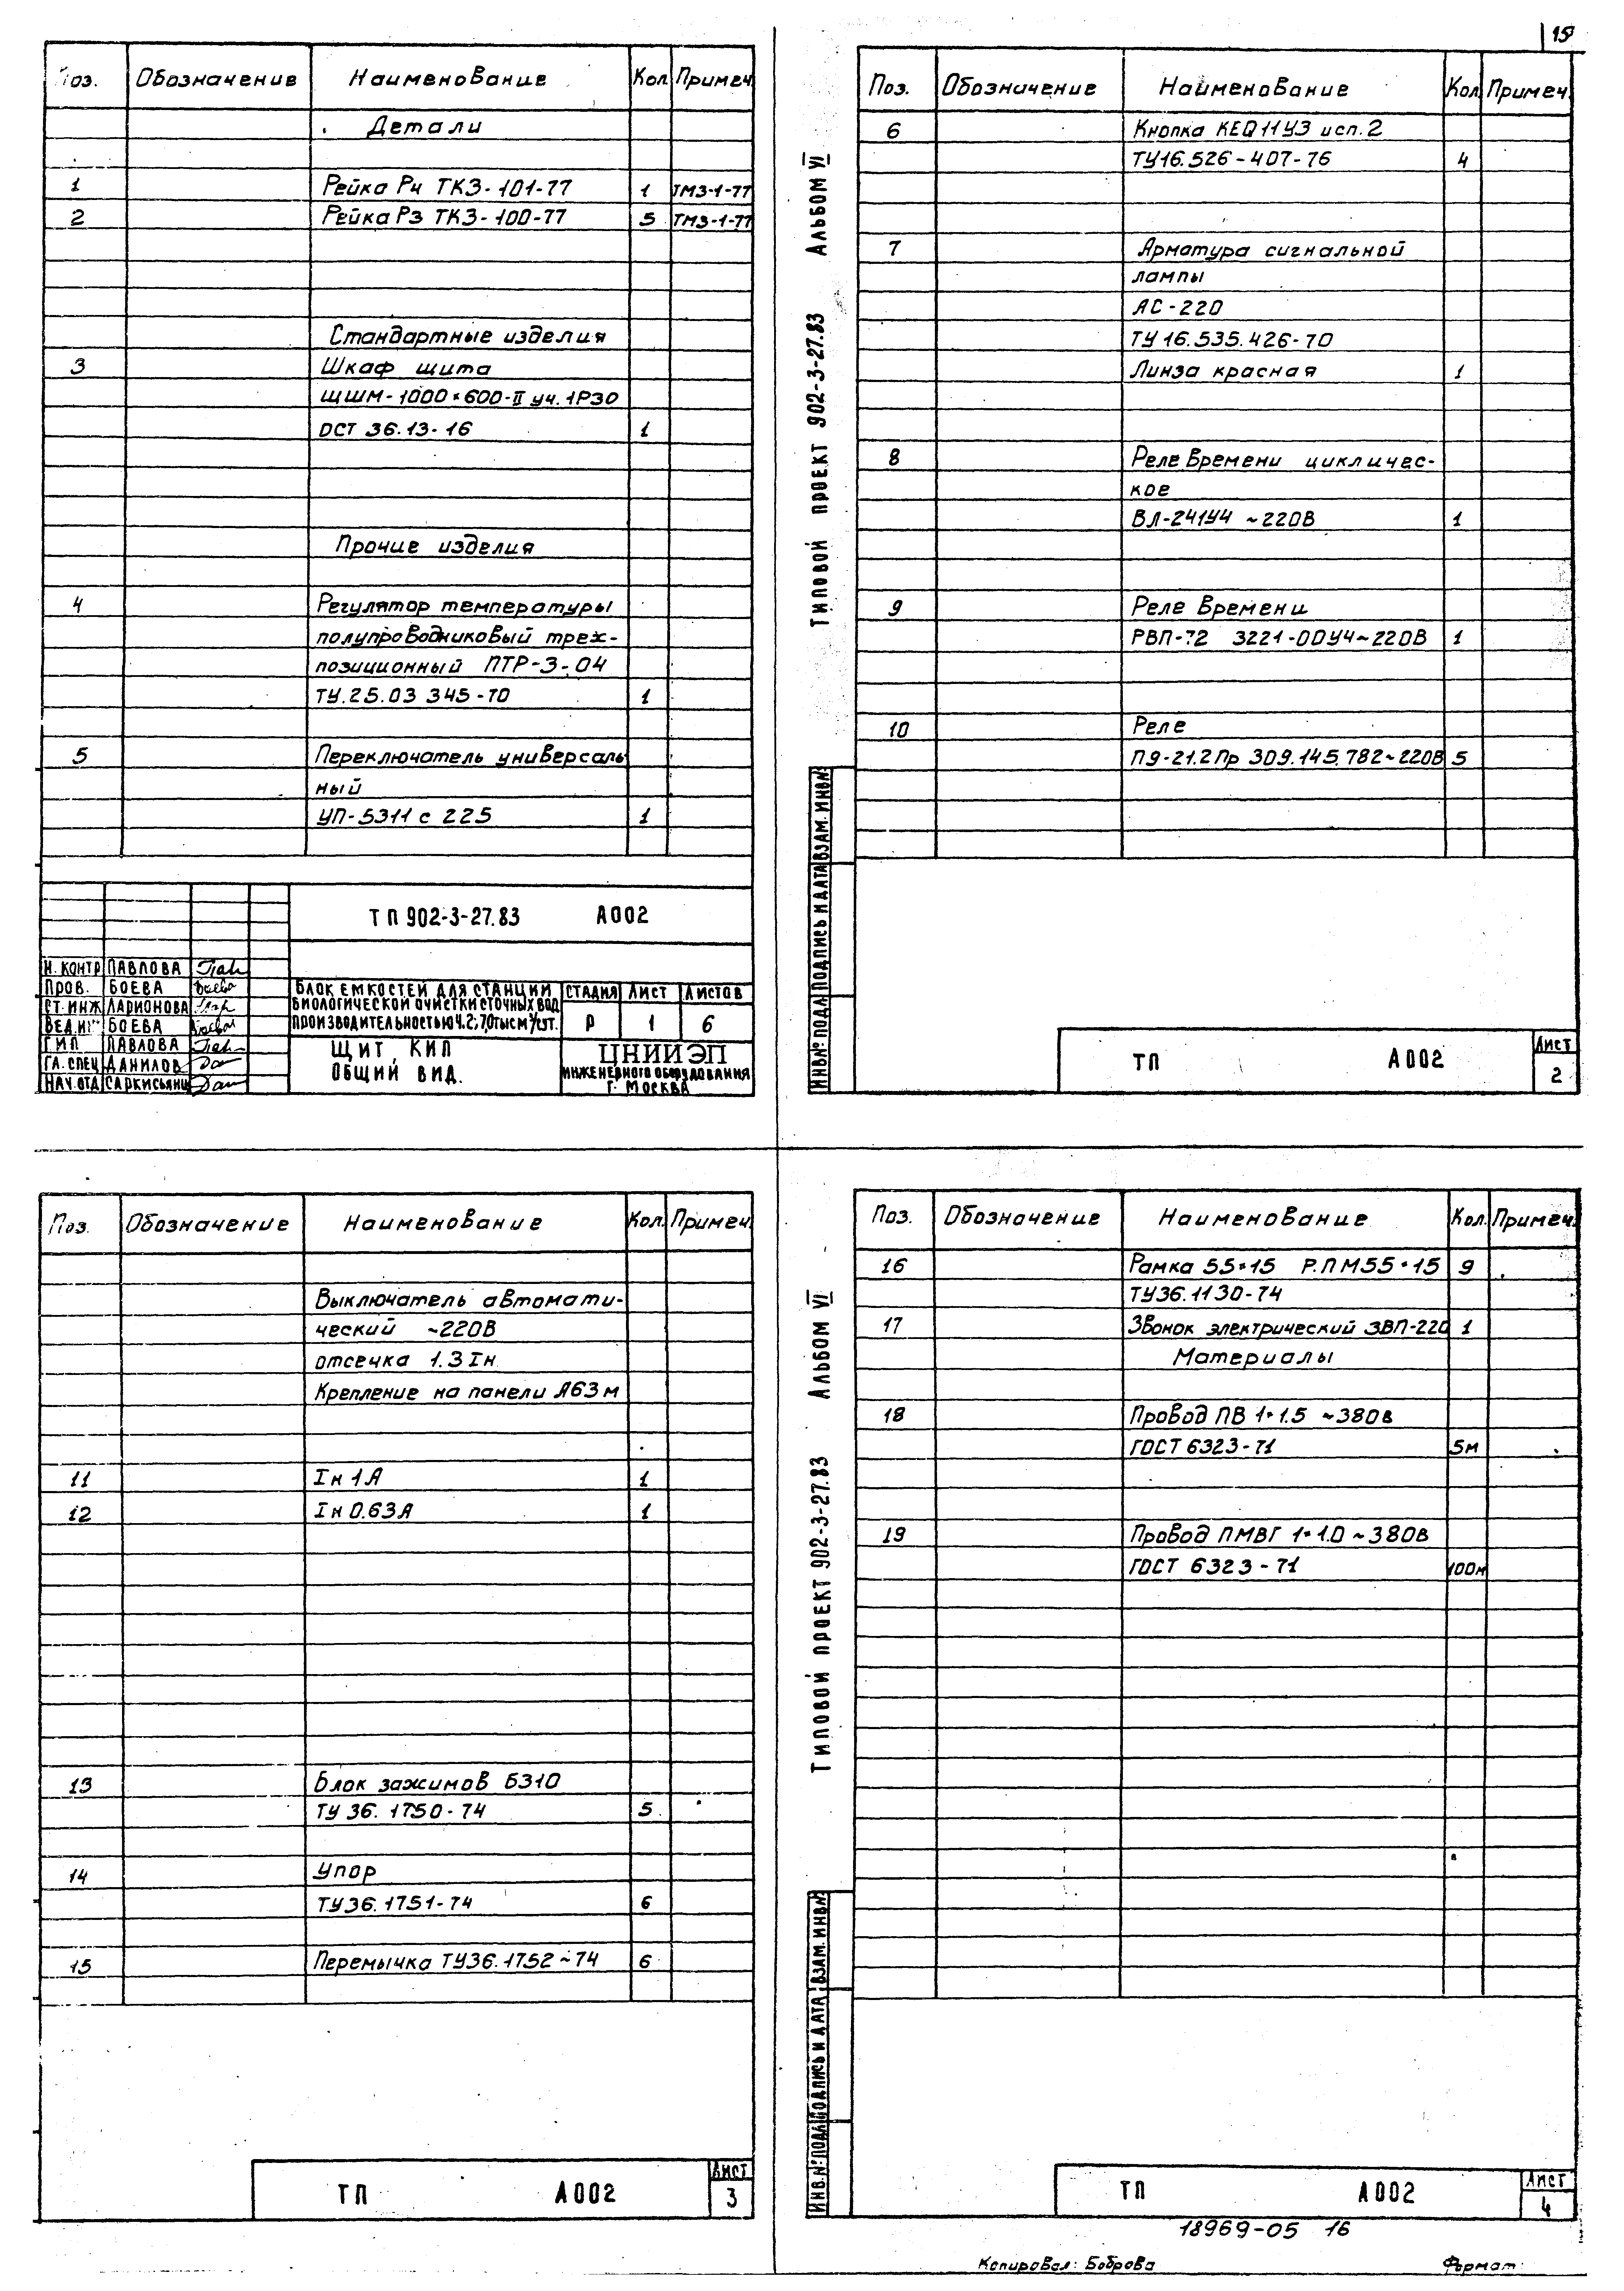 15
Поз. Обозначение Наименование Кол Примеч.
Детали
1 Рейка Р4 ТК3-101-77 1 ТМ3-1-77
2 Рейка Р3 ТК3-100-77 5 ТМ3-1-77
Стандартные изделия
3 Шкаф щита
ЩШМ-1000×600-II уч. 1Р30
ОСТ 36.13-16 1
Прочие изделия
4 Регулятор температуры
полупроводниковый трех-
позиционный ПТР-3-04
ТУ.25.03 345-70 1
5 Переключатель универсаль
ный
УП-5311 с 225 1
ТП 902-3-27.83 А002
Н. КОНТР ПАВЛОВА
ПРОВ. БОЕВА
СТ. ИНЖ ЛАРИОНОВА
ВЕД.ИНЖ БОЕВА
ГИП ПАВЛОВА
ГЛ. СПЕЦ ДАНИЛОВ
НАЧ.ОТД САРКИСЬЯНЦ
БЛОК ЕМКОСТЕЙ ДЛЯ СТАНЦИИ
БИОЛОГИЧЕСКОЙ ОЧИСТКИ СТОЧНЫХ ВОД
ПРОИЗВОДИТЕЛЬНОСТЬЮ 4.2; 7,0 ТЫС М³/СУТ.
СТАДИЯ ЛИСТ ЛИСТОВ
Р 1 6
ЩИТ КИП
ОБЩИЙ ВИД.
ЦНИИЭП
ИНЖЕНЕРНОГО ОБОРУДОВАНИЯ
Г. МОСКВА
ТИПОВОЙ ПРОЕКТ 902-3-27.83 АЛЬБОМ VI
Поз. Обозначение Наименование Кол Примеч.
6 Кнопка КЕ011У3 исп. 2
ТУ16.526-407-76 4
7 Арматура сигнальной
лампы
АС-220
ТУ 16.535.426-70
Линза красная 1
8 Реле Времени цикличес-
кое
ВЛ-241У4 ~220В 1
9 Реле Времени
РВП-72 3221-00У4~220В 1
10 Реле
ПЭ-21.2Пр 309.145.782~220В 5
ИНВ.№ ПОДЛ ПОДПИСЬ И ДАТА ВЗАМ. ИНВ№
ТП А002
ЛИСТ
2
Поз. Обозначение Наименование Кол. Примеч.
Выключатель автомати-
ческий ~220В
отсечка 1.3 Iн
Крепление на панели А63м
11 Iн 1А 1
12 Iн 0.63А 1
13 Блок зажимов БЗ10
ТУ 36.1750-74 5
14 Упор
ТУ36.1751-74 6
15 Перемычка ТУ36.1752-74 6
ТП А002
ЛИСТ
3
ТИПОВОЙ ПРОЕКТ 902-3-27.83 АЛЬБОМ VI
Поз. Обозначение Наименование Кол. Примеч.
16 Рамка 55×15 Р.ПМ55×15 9
ТУ36.1130-74
17 Звонок электрический ЗВП-220 1
Материалы
18 Провод ПВ 1×1.5 ~380в
ГОСТ 6323-71 5м
19 Провод ПМВГ 1×1.0 ~380в
ГОСТ 6323-71 100м
ИНВ.№ ПОДЛ ПОДПИСЬ И ДАТА ВЗАМ. ИНВ№
ТП А002
ЛИСТ
4
18969-05 16
Копировал: Боброва Формат: